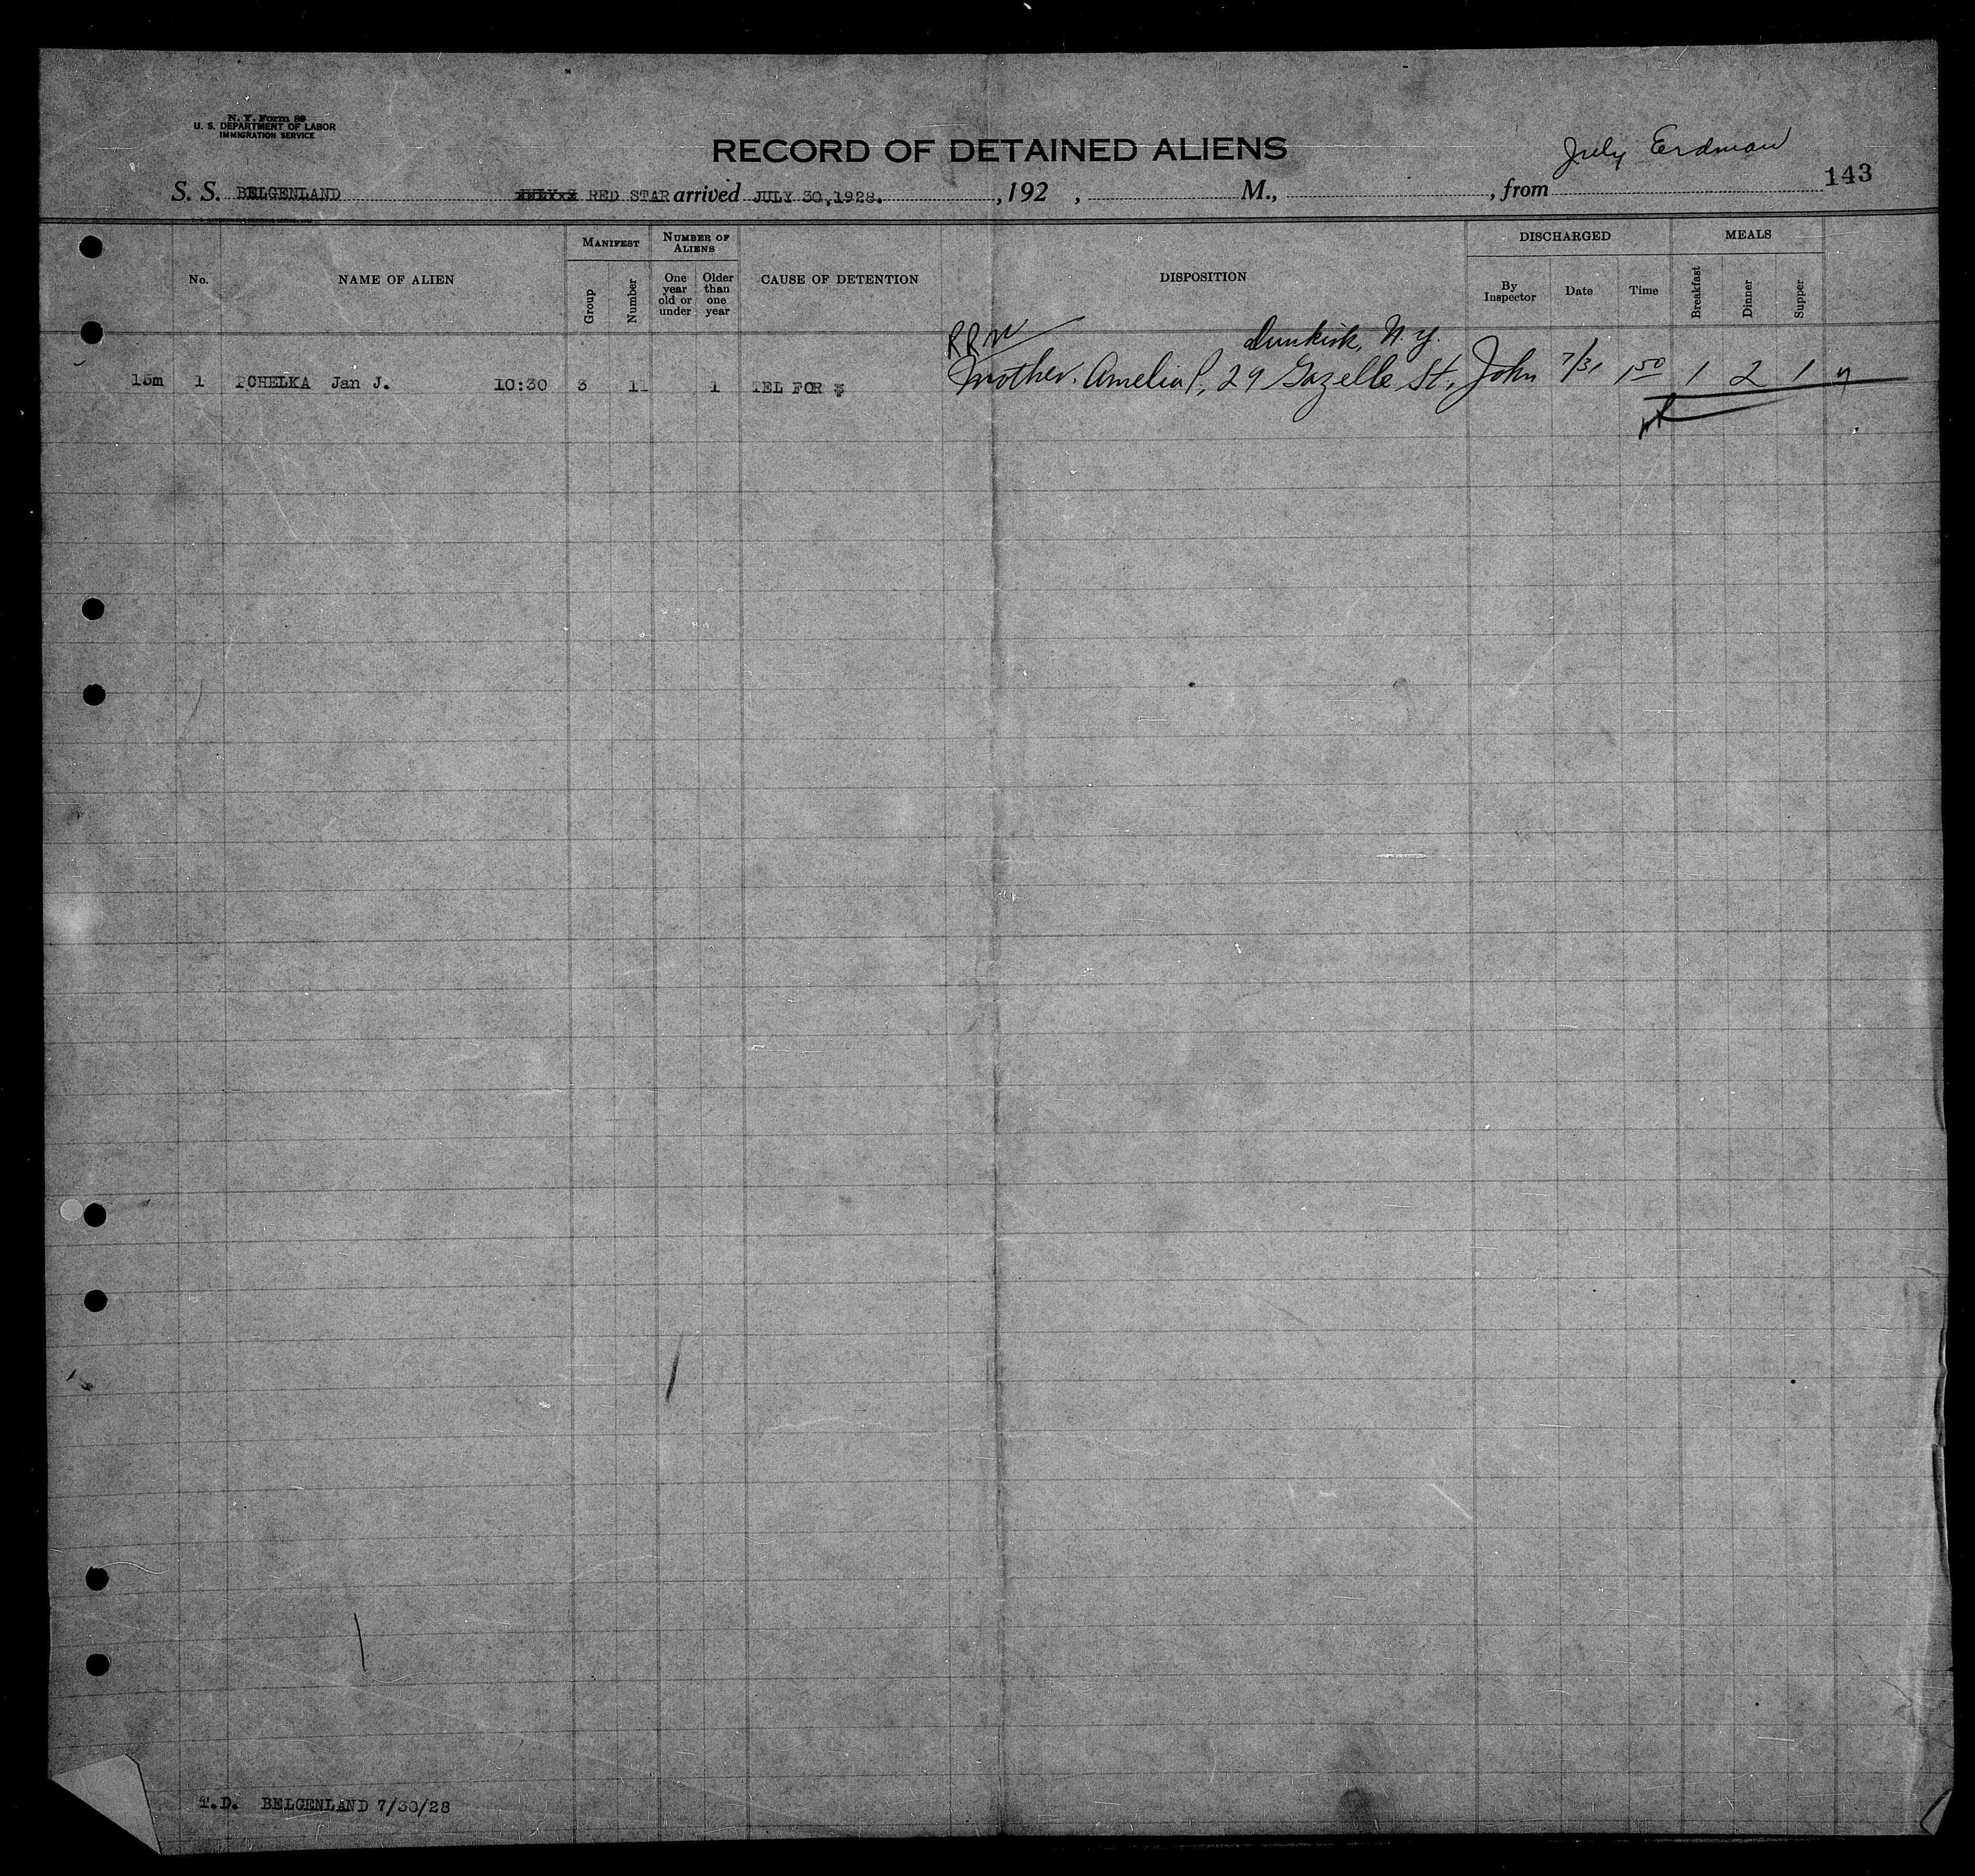 N. Y. Form 89
U. S. DEPARTMENT OF LABOR
IMMIGRATION SERVICE
RECORD OF DETAINED ALIENS
July Erdman
143
S. S. BELGENLAND RED STAR arrived JULY 30,1928. , 192 , M., , from
No.
NAME OF ALIEN
MANIFEST
Group
Number
NUMBER OF ALIENS
One year old or under
Older than one year
CAUSE OF DETENTION
DISPOSITION
DISCHARGED
By Inspector
Date
Time
MEALS
Breakfast
Dinner
Supper
Dunkirk, N.Y.
15m 1 PCHELKA Jan J. 10:30 3 11 1 TEL FOR $ Mother. Amelia P., 29 Gazelle St., John 7/31 1 50 1 2 1
T.D. BELGENLAND 7/30/28